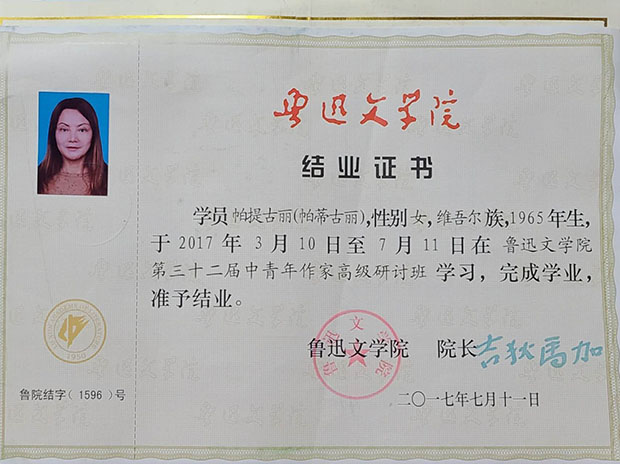 鲁迅文学院
结业证书
学员帕提古丽(帕蒂古丽),性别女,维吾尔族,1965年生,
于 2017 年 3 月 10 日至 7 月 11 日在 鲁迅文学院
第三十二届中青年作家高级研讨班 学习,完成学业,
准予结业。
鲁迅文学院
鲁迅文学院 院长 吉狄马加
鲁院结字( 1596 )号
二〇一七年七月十一日